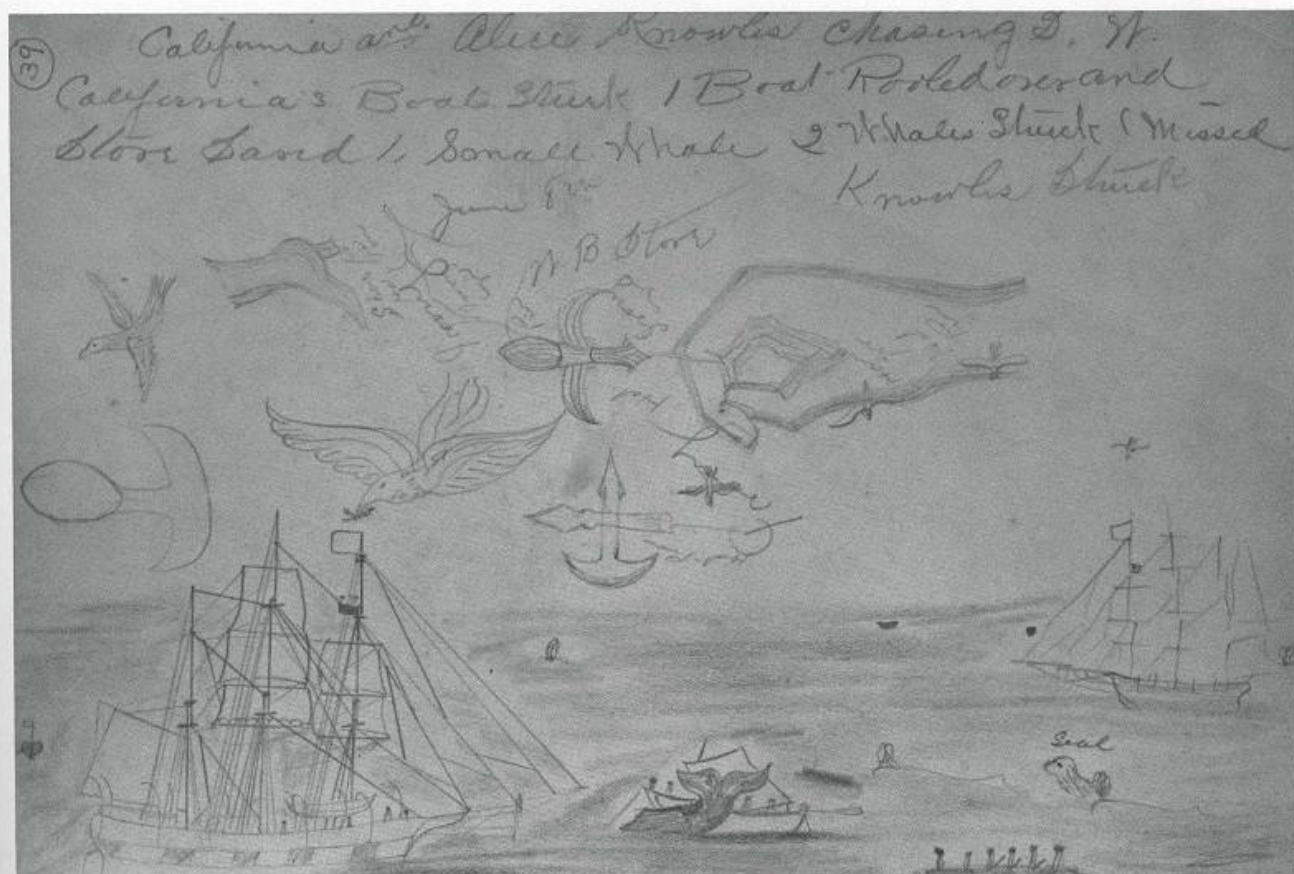 39
California and. Alice Knowles chasing D. W.
California's Boats Stuck 1 Boat Rooled over and
Stove Saved 1, Small Whale 2 Whales Stuck 1 Missed
Knowles Stuck
June 8th
W B Stove
Seal